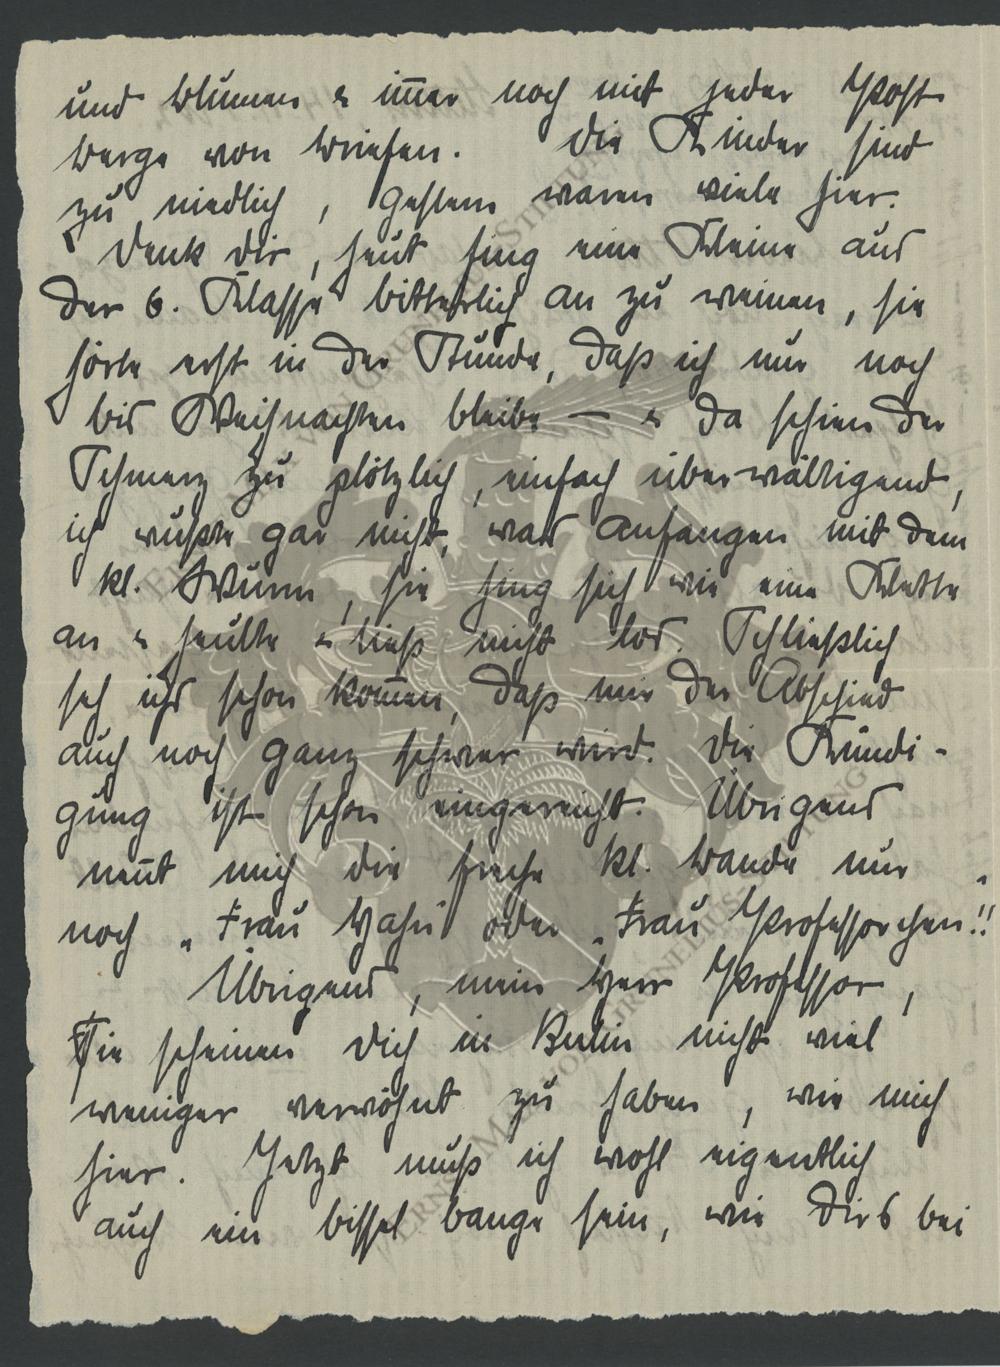 und Blumen & im̅er noch mit jeder Post
Berge von Briefen. Die Kinder sind
zu niedlich, gestern waren viele hier.
Denk Dir, heut fing eine Kleine aus
der 6. Klasse bitterlich an zu weinen, sie
hörte erst in der Stunde, daß ich nur noch
bis Weihnachten bleibe — & da schien der
Schmerz zu plötzlich, einfach überwältigend,
ich wußte gar nicht, was anfangen mit dem
kl. Wurm, sie hing sich wie eine Klette
an & heulte & ließ nicht los. Schließlich
seh ichs schon kom̅en, daß mir der Abschied
auch noch ganz schwer wird. Die Kündi-
gung ist schon eingereicht. Übrigens
nen̅t mich die freche kl. Bande nur
noch „Frau Hahn" oder „Frau Professorchen"!!
Übrigens, mein Herr Professor,
Sie scheinen Dich in Berlin nicht viel
weniger verwöhnt zu haben, wie mich
hier. Jetzt muß ich wohl eigentlich
auch ein bissel bange sein, wie Dirs bei